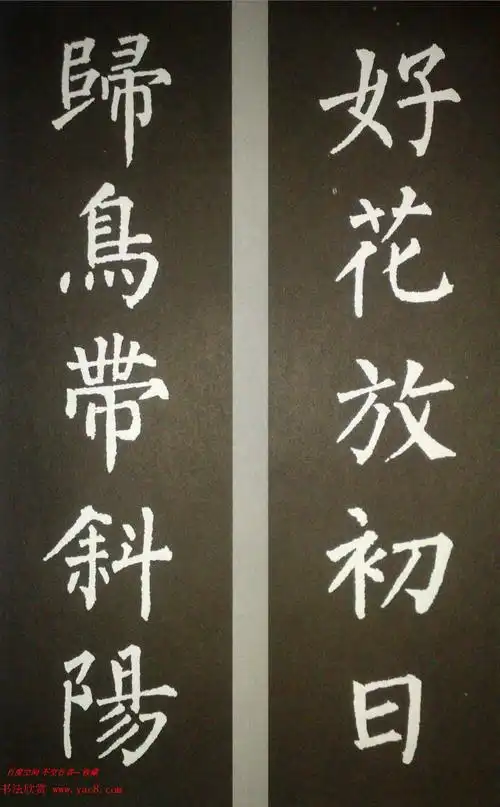 好花放初日
歸鳥帶斜陽
百度空间 不变在喜一收藏
书法欣赏 www.yac8.com